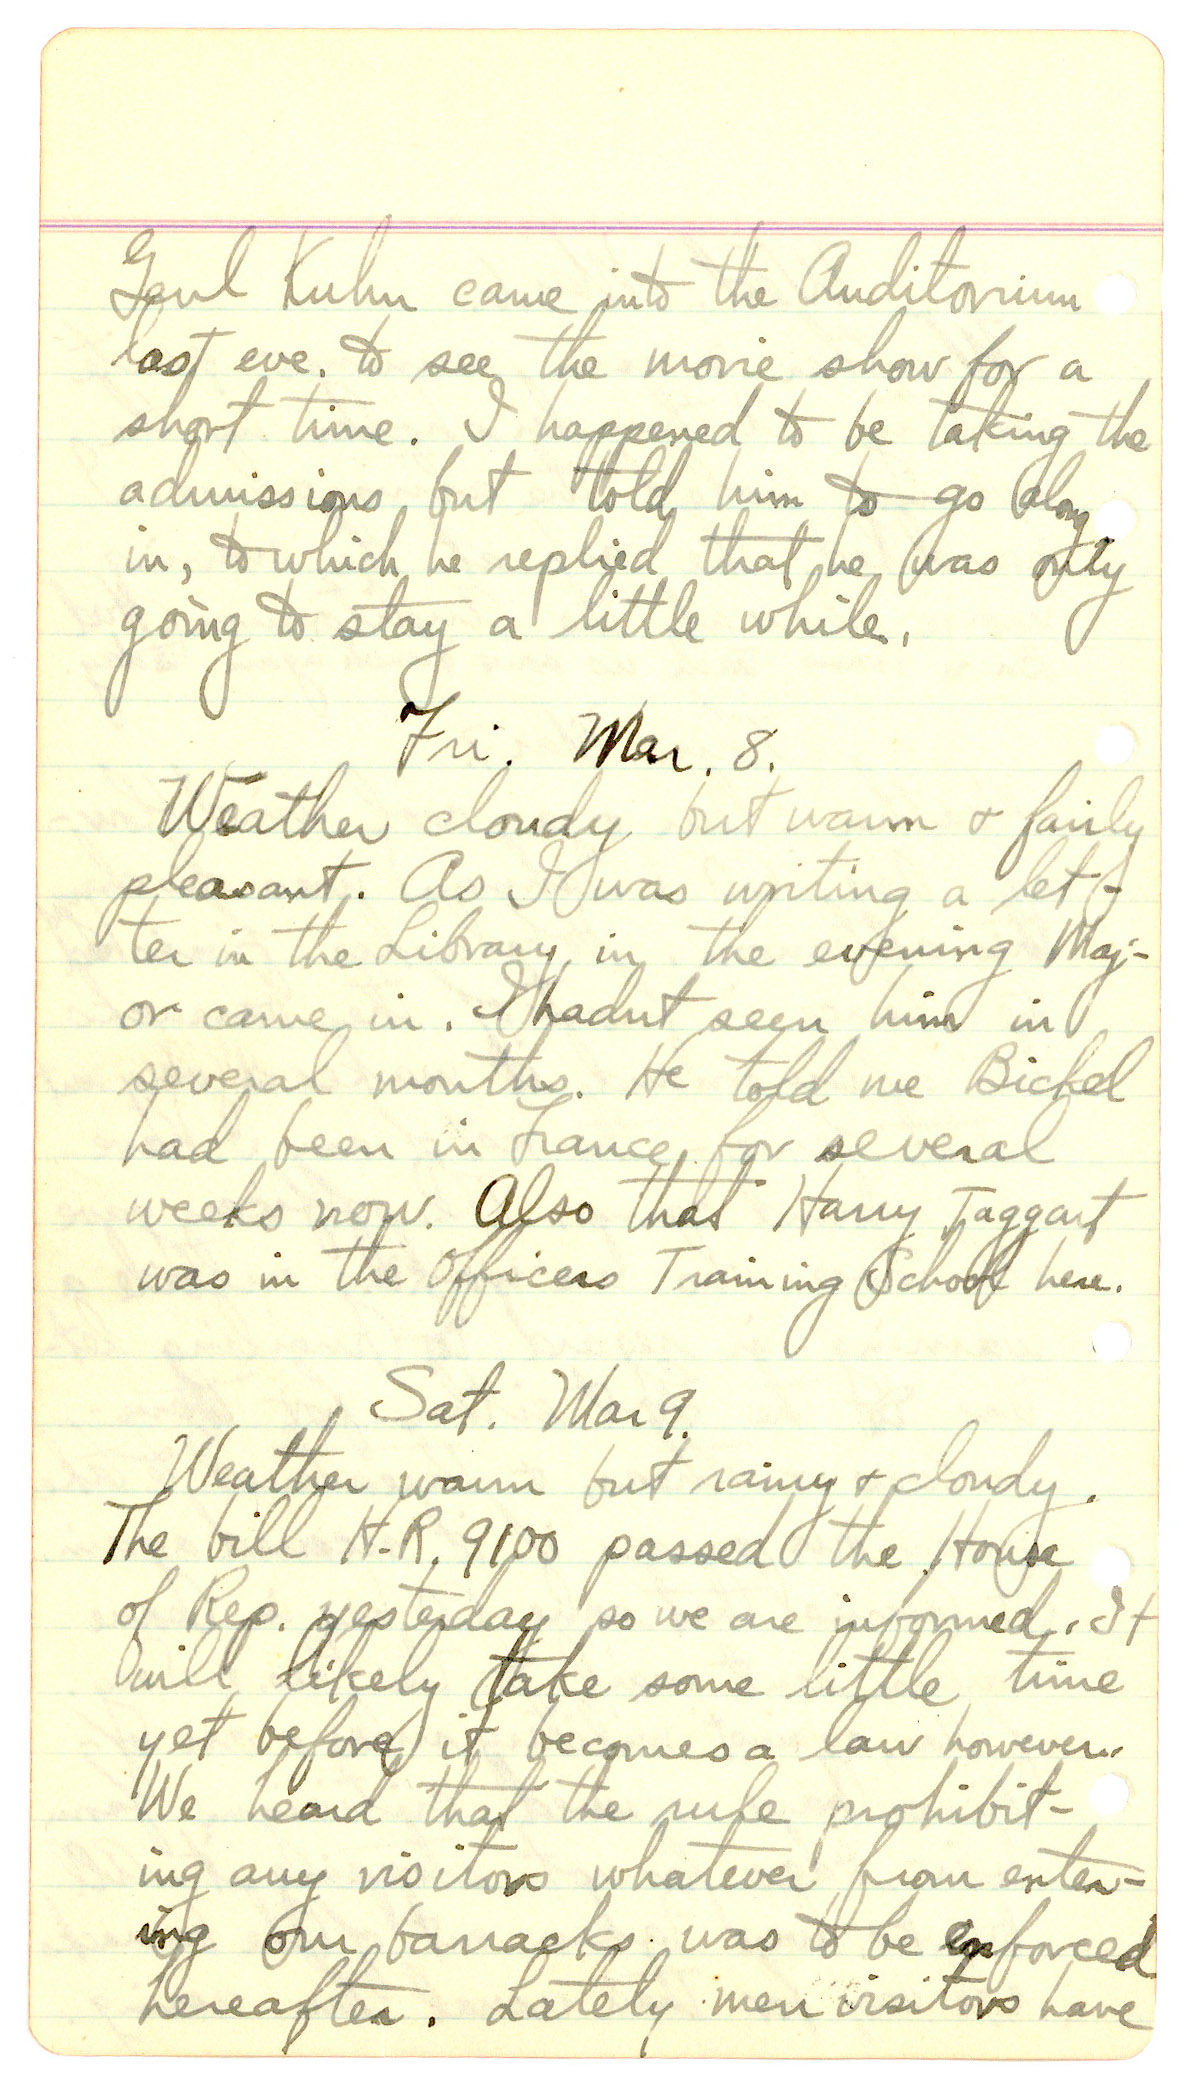 Genl Kuhn came into the Auditorium
last eve. to see the movie show for a
short time. I happened to be taking the
admissions but told him to go along
in, to which he replied that he was only
going to stay a little while.
Fri. Mar. 8.
Weather cloudy but warm & fairly
pleasant. As I was writing a let-
ter in the Library in the evening Maj-
or came in. I hadnt seen him in
several months. He told me Bickel
had been in France for several
weeks now. Also that Harry Taggart
was in the Officers Training School here.
Sat. Mar 9.
Weather warm but rainy & cloudy.
The bill H.R. 9100 passed the House
of Rep. yesterday so we are informed. It
will likely take some little time
yet before it becomes a law however.
We heard that the rule prohibit-
ing any visitors whatever from enter-
ing our barracks was to be enforced
hereafter. Lately men visitors have